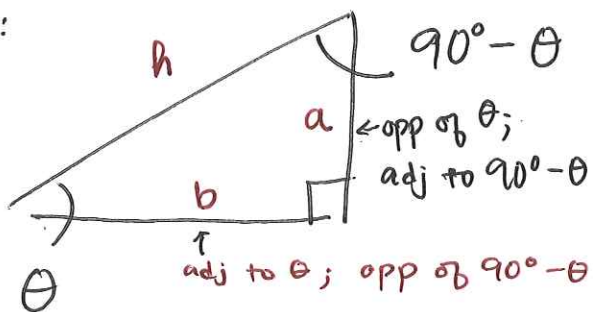 :
h
90° - θ
a
←opp of θ;
adj to 90° - θ
b
↑
adj to θ; opp of 90° - θ
θ